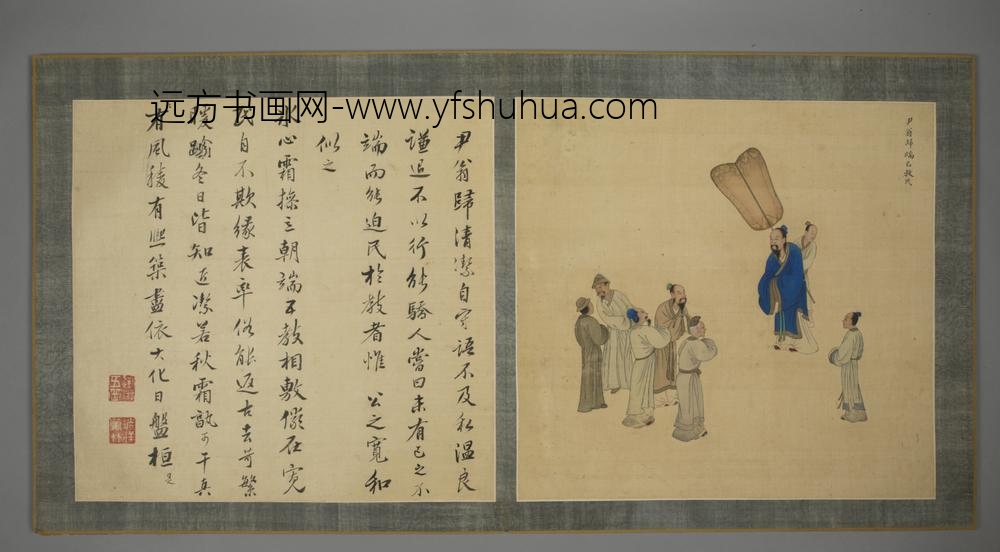 远方书画网-www.yfshuhua.com
尹翁歸端己教民
尹翁歸清潔自守語不及私温良
謙退不以行能驕人嘗曰未有己之不
端而能迫民於教者惟 公之寬和
似之
冰心霜操立朝端五教相敷儘在寬
自不欺緣表率俗能返古去苛繁
暖踰冬日皆知近潔若秋霜孰可干真
風有築盡依大化日盤桓